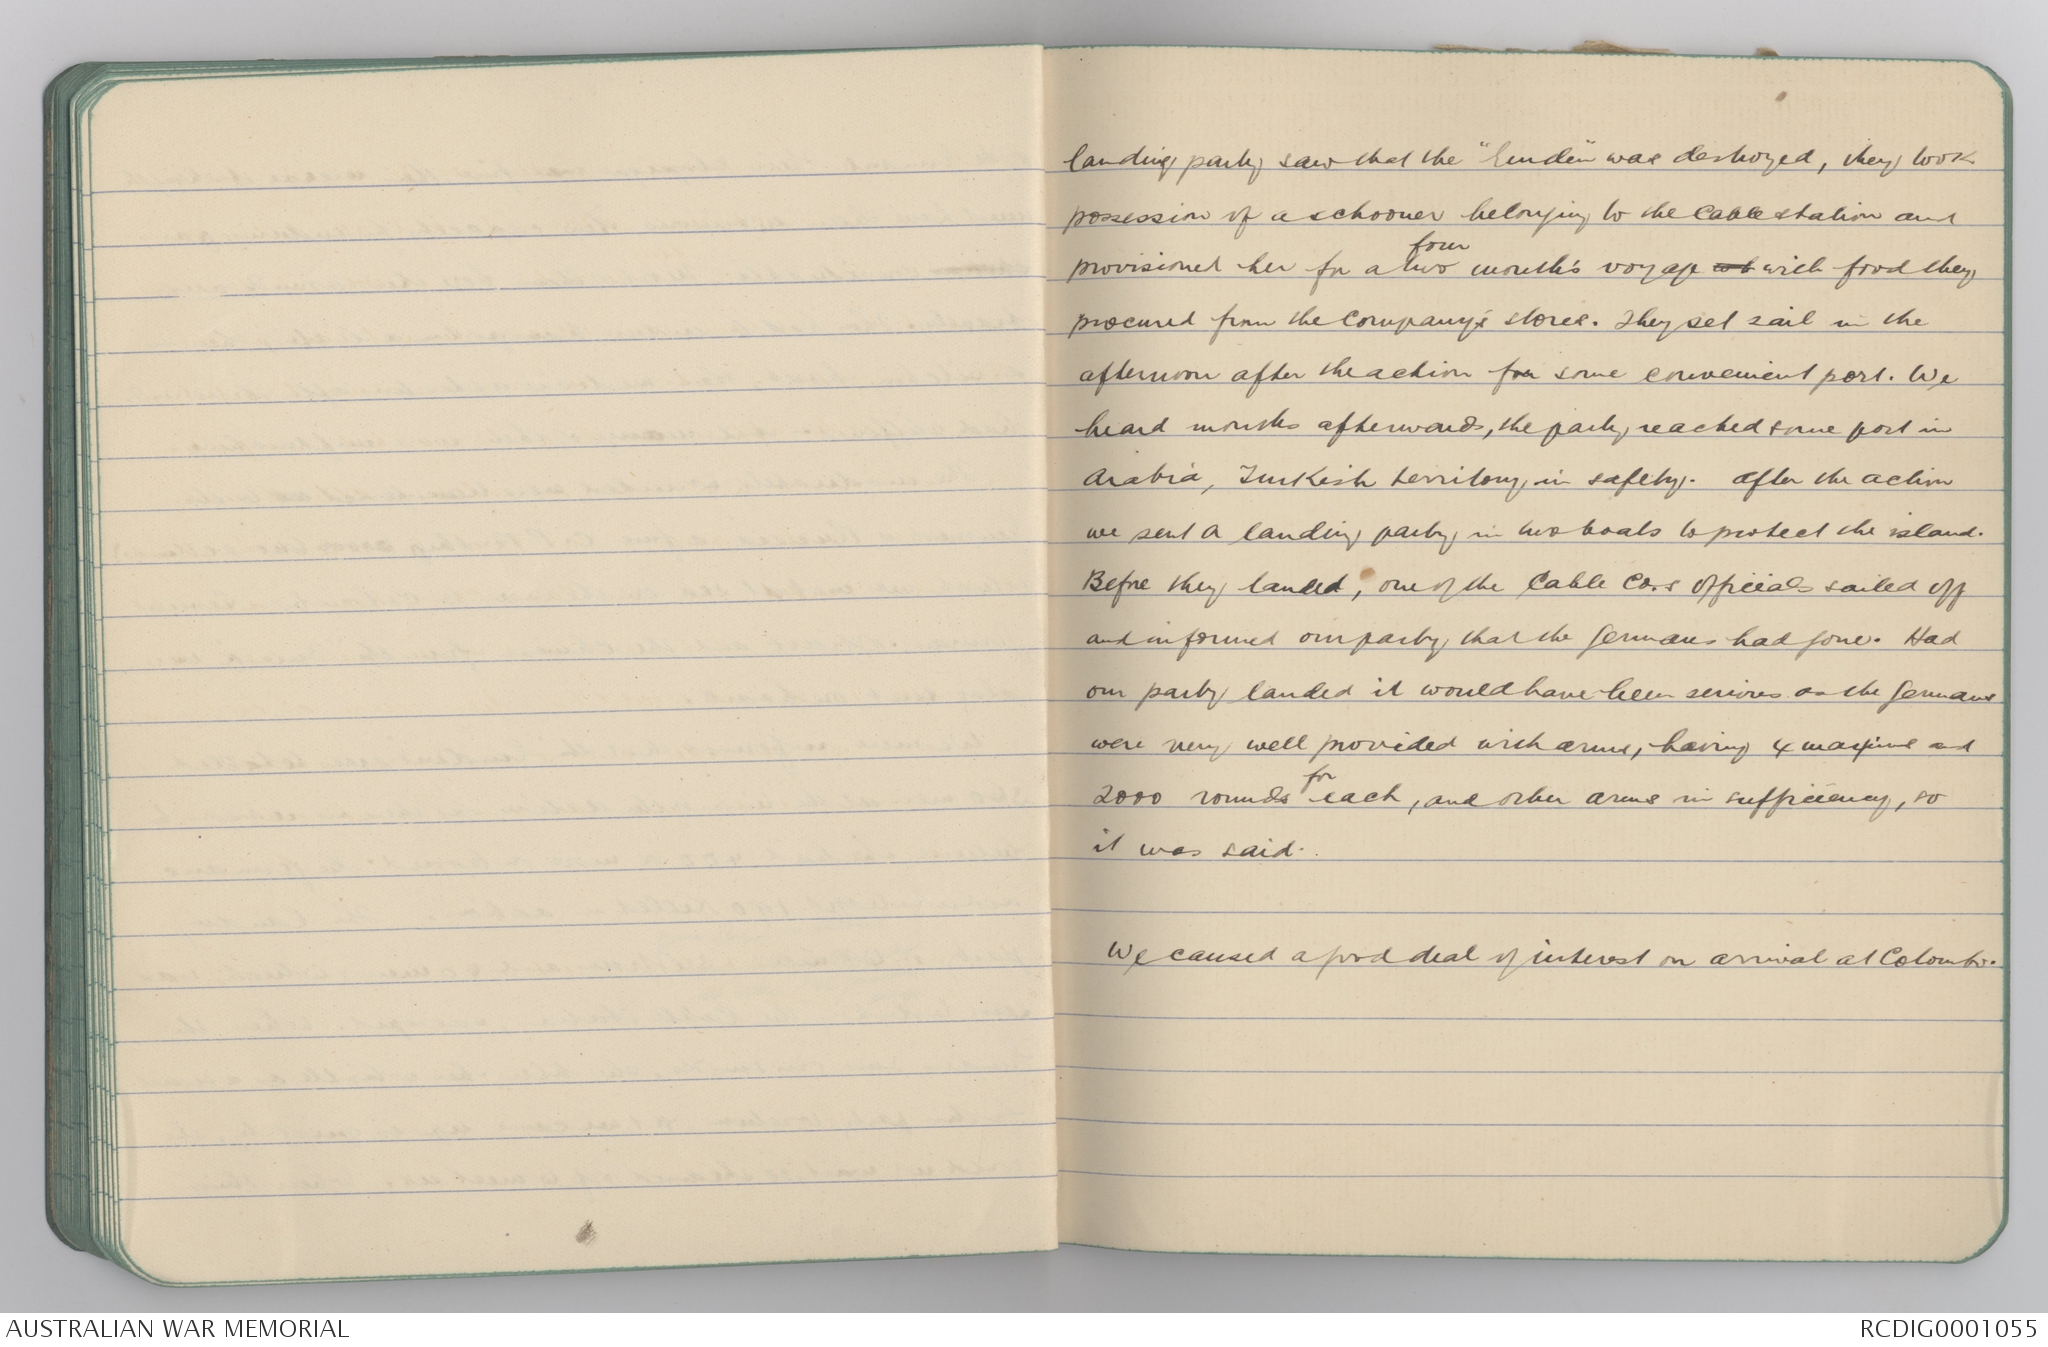 landing party saw that the "Emden" was destroyed, they took
possession of a schooner belonging to the Cable station and
four
provisioned her for a two month's voyage with food they
procured from the Company's stores. They set sail in the
afternoon after the action for some convenient port. We
heard months afterwards, the party reached some port in
Arabia, Turkish territory, in safety. After the action
we sent a landing party in two boats to protect the island.
Before they landed, one of the Cable Co.s officials sailed off
and informed our party that the Germans had gone. Had
our party landed it would have been serious as the Germans
were very well provided with arms, having 4 maxims and
for
2000 rounds each, and other arms in sufficiency, so
it was said.
We caused a good deal of interest on arrival at Colombo.
AUSTRALIAN WAR MEMORIAL
RCDIG0001055